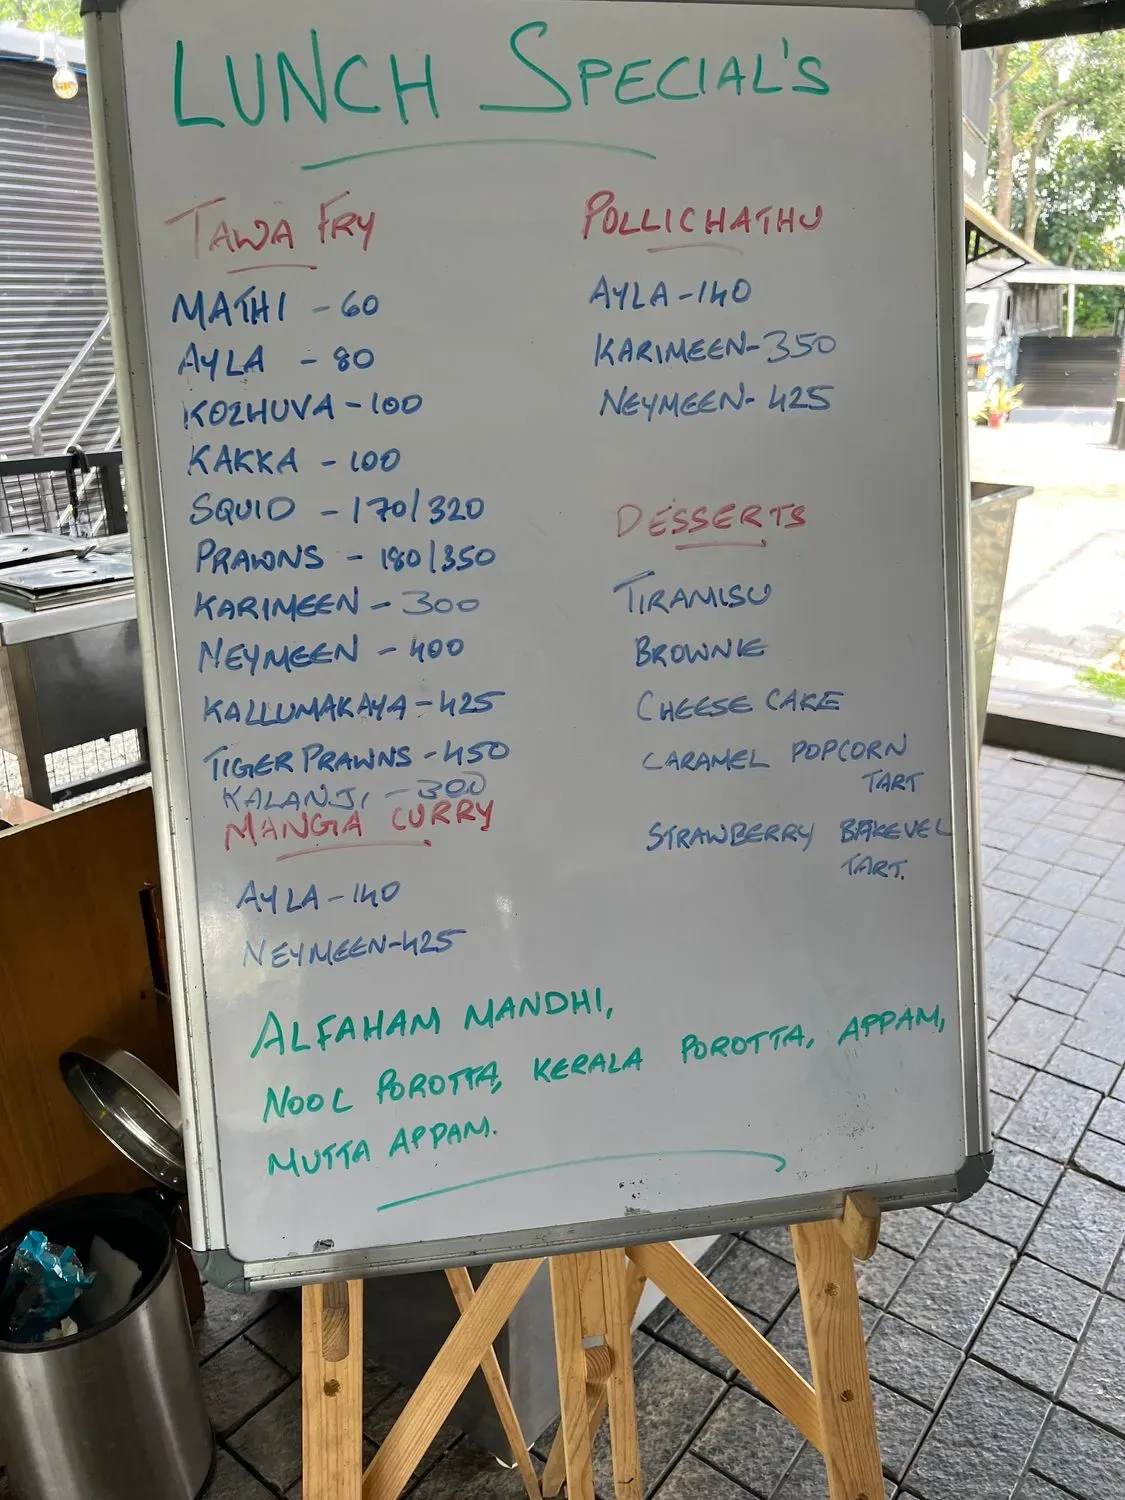 LUNCH SPECIAL'S
TAWA FRY
MATHI - 60
AYLA - 80
KOZHUVA - 100
KAKKA - 100
SQUID - 170/320
PRAWNS - 180/350
KARIMEEN - 300
NEYMEEN - 400
KALLUMAKAYA - 425
TIGER PRAWNS - 450
KALANJI - 300
MANGA CURRY
AYLA - 140
NEYMEEN - 425
POLLICHATHU
AYLA - 140
KARIMEEN - 350
NEYMEEN - 425
DESSERTS
TIRAMISU
BROWNIE
CHEESE CAKE
CARAMEL POPCORN
TART
STRAWBERRY BAKEVEL
TART.
ALFAHAM MANDHI,
NOOL POROTTA, KERALA POROTTA, APPAM,
MUTTA APPAM.